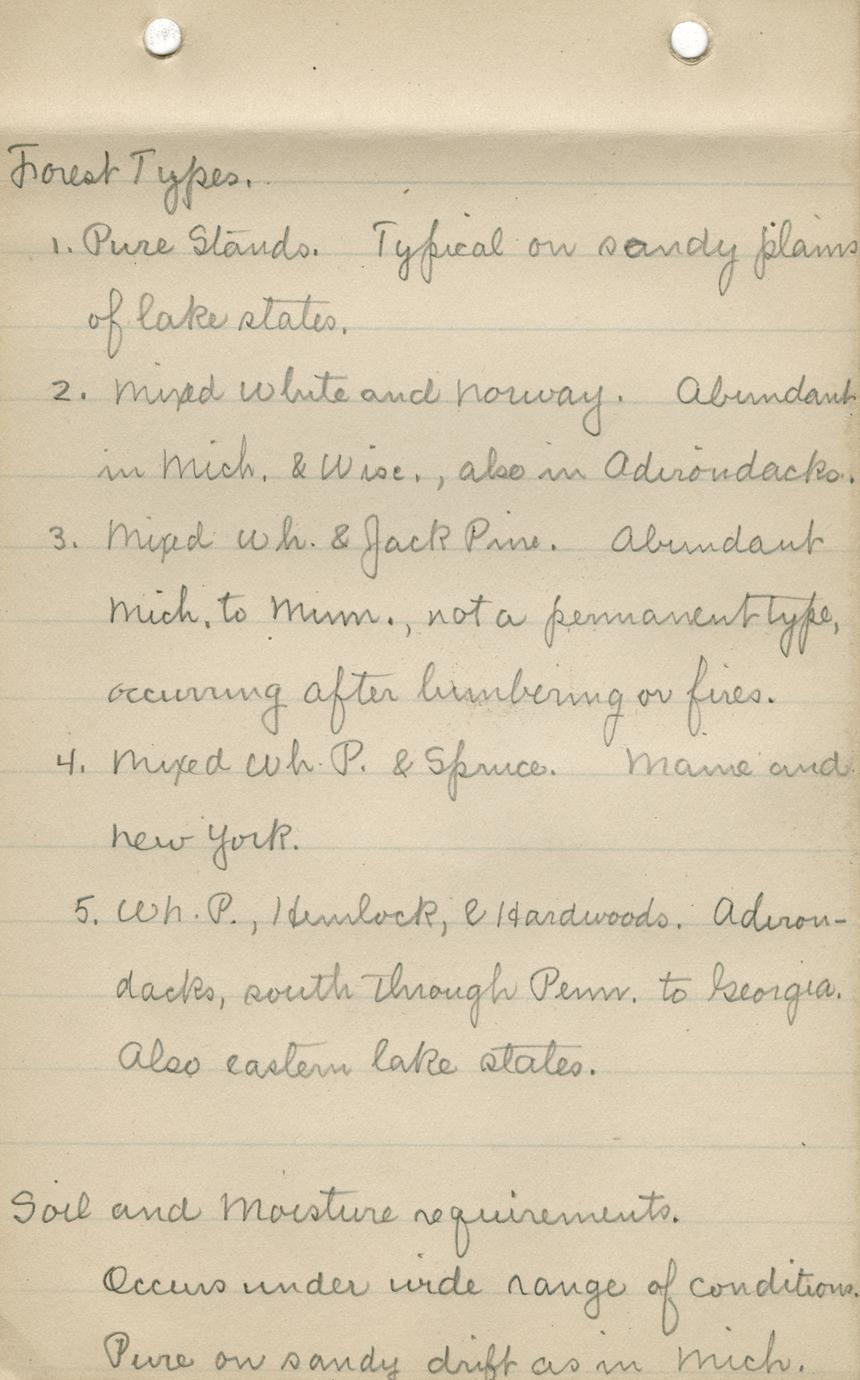 Forest Types.
1. Pure Stands. Typical on sandy plains
of lake states.
2. Mixed White and Norway. Abundant
in Mich. & Wisc., also in Adirondacks.
3. Mixed Wh. & Jack Pine. Abundant
Mich. to Minn., not a permanent type,
occurring after lumbering or fires.
4. Mixed Wh. P. & Spruce. Maine and
New York.
5. Wh. P., Hemlock, & Hardwoods. Adiron-
dacks, south through Penn. to Georgia.
Also eastern lake states.
Soil and Moisture requirements.
Occurs under wide range of conditions.
Pure on sandy drift as in Mich.